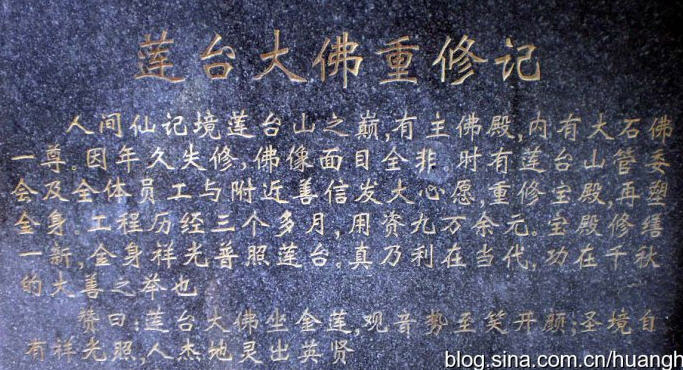 莲台大佛重修记
人间仙记境莲台山之巅,有主佛殿,内有大石佛
一尊.因年久失修,佛像面目全非.时有莲台山管委
会及全体员工与附近善信发大心愿,重修宝殿,再塑
金身.工程历经三个多月,用资九万余元.宝殿修缮
一新,金身祥光普照莲台.真乃利在当代,功在千秋
的大善之举也
赞曰:莲台大佛坐金莲,观音势至笑开颜;圣境自
有祥光照,人杰地灵出英贤
blog.sina.com.cn/huangh